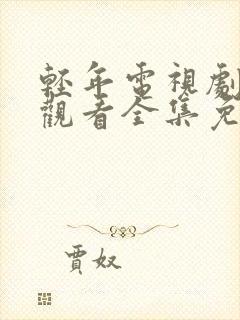 輕年電視劇
觀看全集免
賈奴